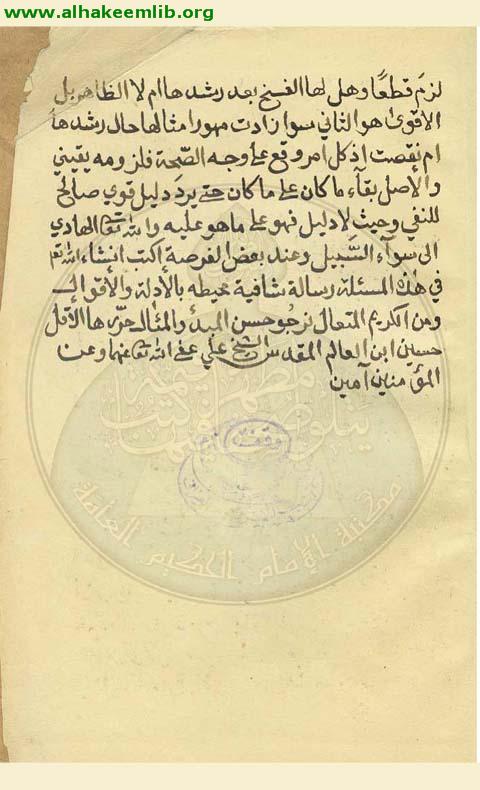 www.alhakeemlib.org
لزمَ قطعًا وهل لها الفسخ بعد رشدها ام لا الظاهر بل
الاقوى هو الثاني سوا زادت مهورا مثالها حال رشدها
ام نقصت اذ كل امر وقع على وجه الصّحة فلزومه يقيني
والاصل بقآء ما كان على ما كان حتى يردَ دليل قوي صالح
للنفي وحيث لا دليل فهو على ما هو عليه والله تعالى الهادي
الى سوآء السَّبيل وعند بعض الفرصة اكتب انشاء الله تعالى
في هذه المسئلة رسالة شافية محيطه بالأدلة والأقوال
ومن الكريم المتعال نرجو حسن المبدء والمئال حرّره الأقل
حسين ابن العالم المقدس الشيخ علي عفى الله تعالى عنهما وعن
المؤمنين آمين
مكتبة الإمام الحكيم العامة